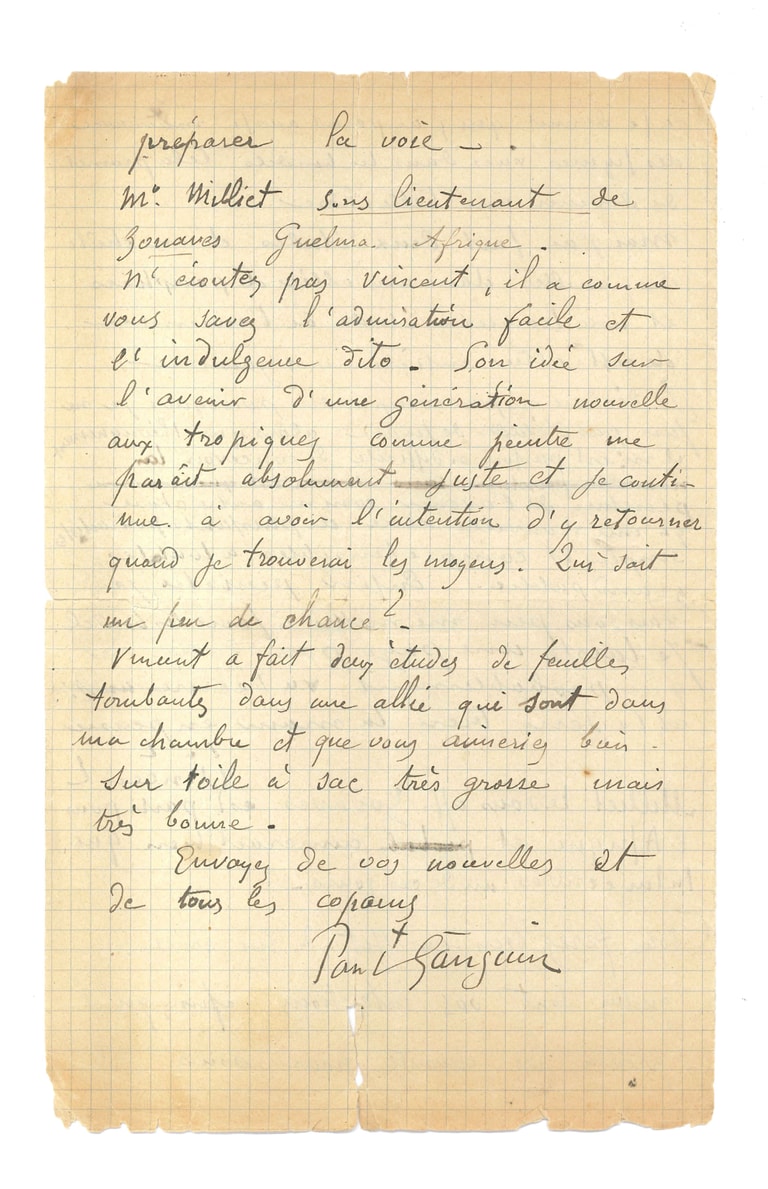 préparer la voie — .
Mr. Milliet sous lieutenant de
zouaves Guelma. Afrique.
N'écoutez pas Vincent, il a comme
vous savez l'admiration facile et
l'indulgence dito. Son idée sur
l'avenir d'une génération nouvelle
aux tropiques comme peintre me
paraît absolument juste et je conti-
nue à avoir l'intention d'y retourner
quand je trouverai les moyens. Qui sait
un peu de chance? —
Vincent a fait deux études de feuilles
tombantes dans une allée qui sont dans
ma chambre et que vous aimeriez bien.
Sur toile à sac très grosse mais
très bonne.
Envoyez de vos nouvelles et
de tous les copains
Paul Gauguin